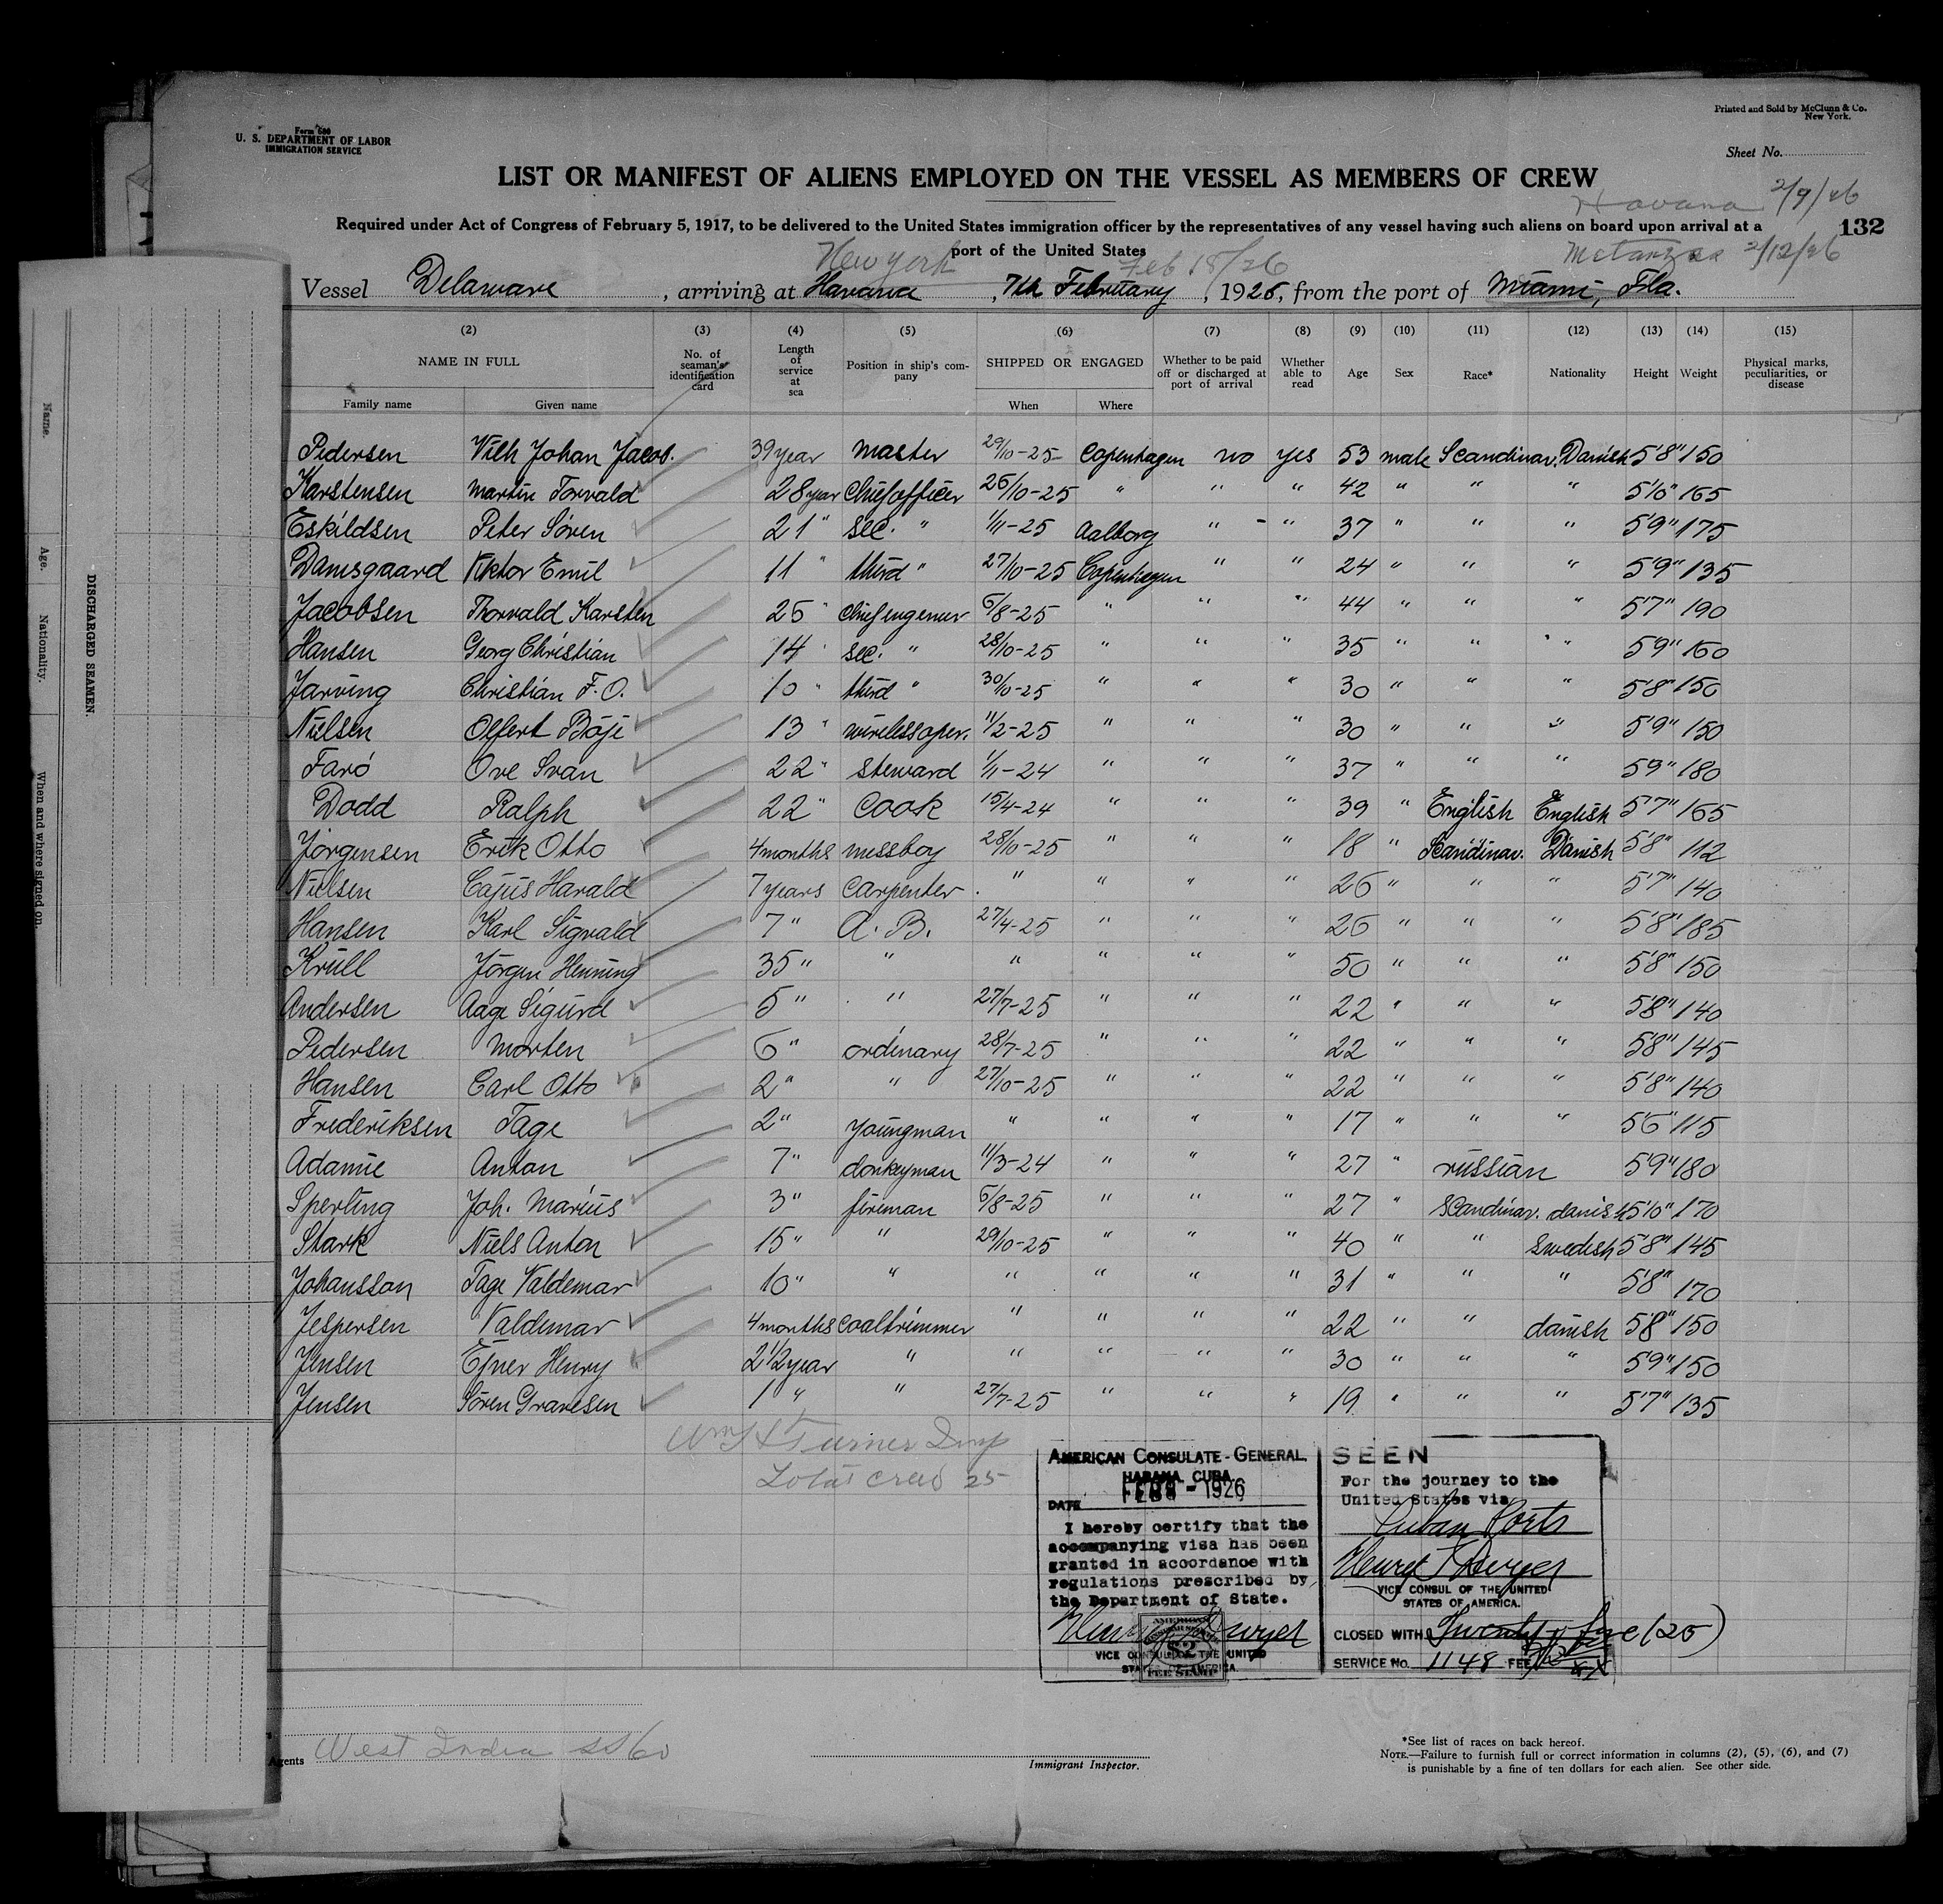 Form 680
U. S. DEPARTMENT OF LABOR
IMMIGRATION SERVICE
Printed and Sold by McClunn & Co.
New York.
Sheet No.
LIST OR MANIFEST OF ALIENS EMPLOYED ON THE VESSEL AS MEMBERS OF CREW
Havana 2/9/26
Required under Act of Congress of February 5, 1917, to be delivered to the United States immigration officer by the representatives of any vessel having such aliens on board upon arrival at a
132
port of the United States
New York Feb 18/26 Matanzas 2/12/26
Vessel Delaware, arriving at Havana, 7th February, 1926, from the port of Miami, Fla.
(2) (3) (4) (5) (6) (7) (8) (9) (10) (11) (12) (13) (14) (15)
NAME IN FULL No. of seaman's identification card Length of service at sea Position in ship's company SHIPPED OR ENGAGED Whether to be paid off or discharged at port of arrival Whether able to read Age Sex Race* Nationality Height Weight Physical marks, peculiarities, or disease
Family name Given name When Where
Pedersen Vilh Johan Jacob. 39 year master 29/10-25 Copenhagen no yes 53 male Scandinav. Danish 5'8" 150
Karstensen Martin Torvald 28 year Chiefofficer 26/10-25 " " " 42 " " " 5'10" 165
Eskildsen Peter Sören 21 " sec. " 1/11-25 Aalborg " " 37 " " " 5'9" 175
Damsgaard Viktor Emil 11 " third " 27/10-25 Copenhagen " " 24 " " " 5'9" 135
Jacobsen Thorvald Karsten 25 " Chiefengeneer 6/8-25 " " " 44 " " " 5'7" 190
Hansen Georg Christian 14 " sec. " 28/10-25 " " " 35 " " " 5'9" 160
Jarving Christian F. O. 10 " third " 30/10-25 " " " 30 " " " 5'8" 150
Nielsen Olfert Böje 13 " wirelessoper. 11/2-25 " " " 30 " " " 5'9" 150
Farö Ove Svan 22 " Steward 1/11-24 " " " 37 " " " 5'9" 180
Dodd Ralph 22 " Cook 15/4-24 " " " 39 " English English 5'7" 165
Jörgensen Erik Otto 4 months messboy 28/10-25 " " " 18 " Scandinav. Danish 5'8" 112
Nielsen Cajus Harald 7 years Carpenter " " " " 26 " " " 5'7" 140
Hansen Karl Sigvald 7 " A. B. 27/4-25 " " " 26 " " " 5'8" 185
Krüll Jörgen Henning 35 " " " " " " 50 " " " 5'8" 150
Andersen Aage Sigurd 5 " " 27/7-25 " " " 22 " " " 5'8" 140
Pedersen Morten 6 " ordinary 28/7-25 " " " 22 " " " 5'8" 145
Hansen Carl Otto 2 " " 27/10-25 " " " 22 " " " 5'8" 140
Frederiksen Tage 2 " youngman " " " " 17 " " " 5'6" 115
Adamie Anton 7 " donkeyman 11/3-24 " " " 27 " russian 5'9" 180
Sperling Joh. Marius 3 " fireman 6/8-25 " " " 27 " Scandinav. danish 5'10" 170
Stark Niels Anton 15 " " 29/10-25 " " " 40 " " Swedish 5'8" 145
Johansson Tage Valdemar 10 " " " " " " 31 " " " 5'8" 170
Jespersen Valdemar 4 months coaltrimmer " " " " 22 " " danish 5'8" 150
Jensen Ejner Henry 2 1/2 year " " " " " 30 " " " 5'9" 150
Jensen Sören Gravesen 1 " " 27/7-25 " " " 19 " " " 5'7" 135
Turner Insp
Total crew 25
AMERICAN CONSULATE-GENERAL
HABANA, CUBA.
DATE FEB - 1926
I hereby certify that the
accompanying visa has been
granted in accordance with
regulations prescribed by
the Department of State.
VICE CONSUL OF THE UNITED
STATES OF AMERICA.
AMERICAN
$2
FEE STAMP
SEEN
For the journey to the
United States via
Cuban Ports
VICE CONSUL OF THE UNITED
STATES OF AMERICA.
CLOSED WITH Twenty five (25)
SERVICE No. 1148 FEE
Agents West India SS Co
Immigrant Inspector.
*See list of races on back hereof.
NOTE.—Failure to furnish full or correct information in columns (2), (5), (6), and (7)
is punishable by a fine of ten dollars for each alien. See other side.
DISCHARGED SEAMEN.
Name.
Age.
Nationality.
When and where signed on.